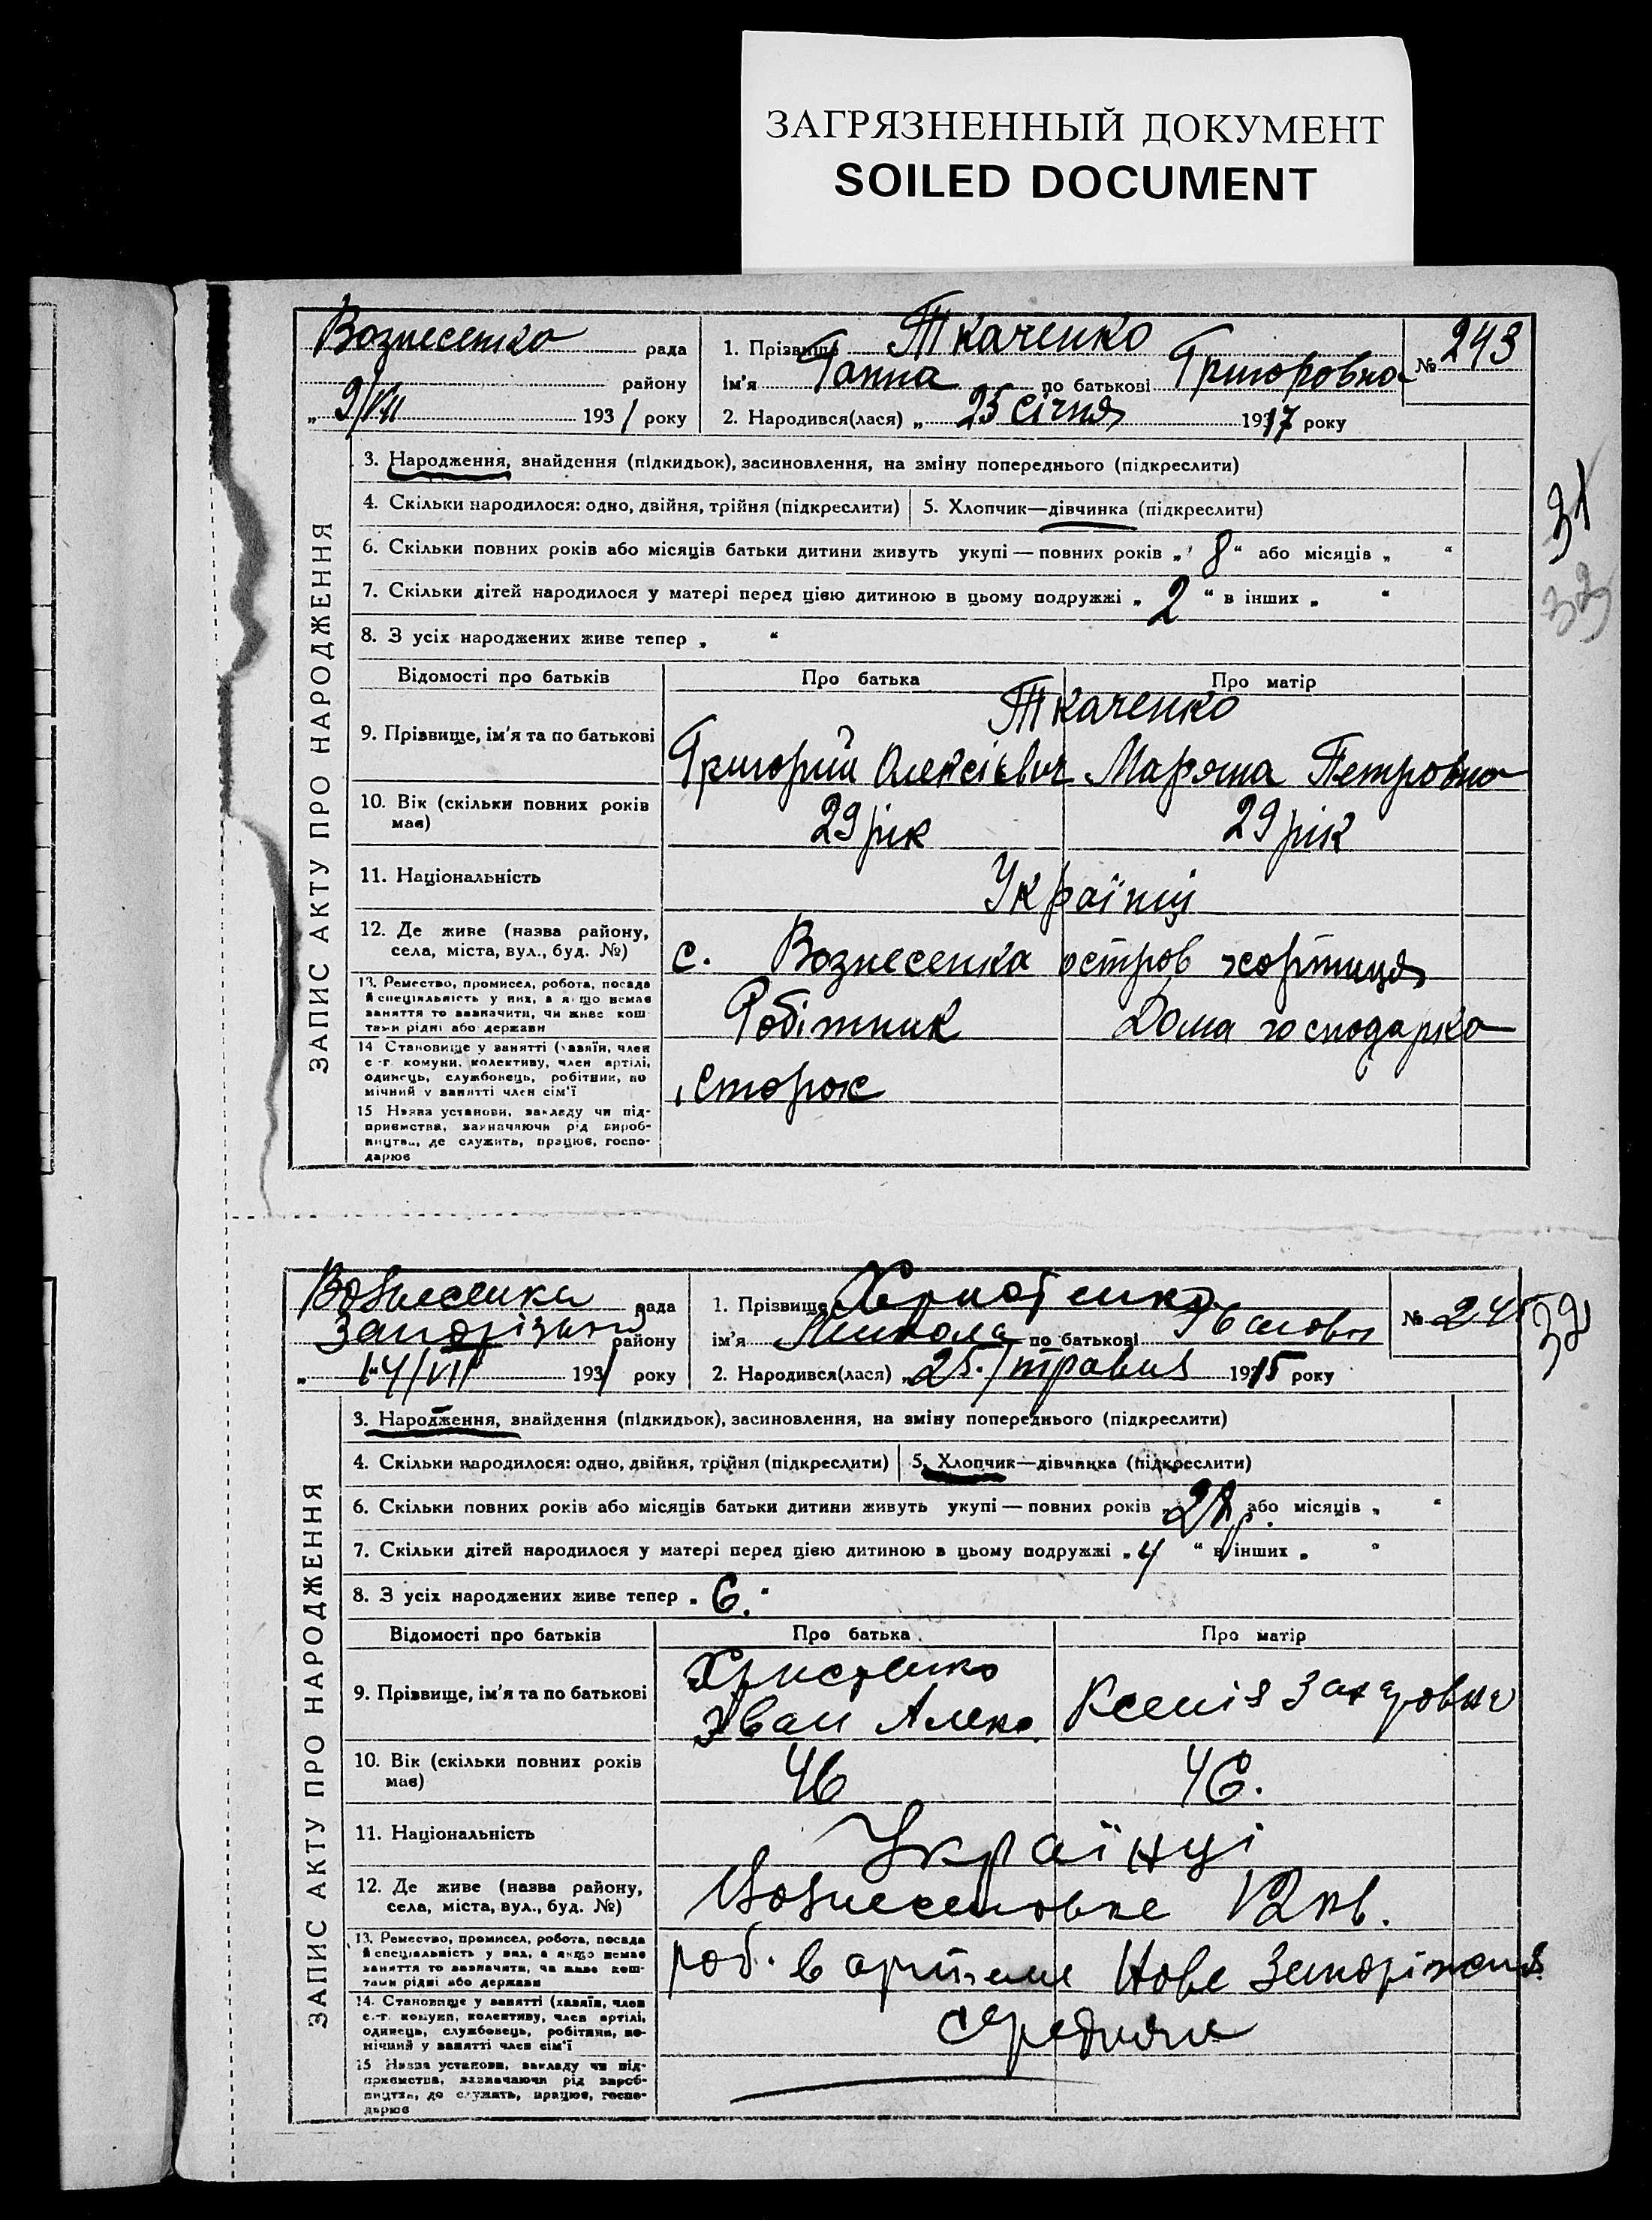 ЗАГРЯЗНЕННЫЙ ДОКУМЕНТ
SOILED DOCUMENT
Вознесенка рада
району
„ 9/VII 1931 року
1. Прізвище Ткаченко
ім'я Ганна по батькові Григоровна
2. Народився(лася) „ 25 січня 1917 року
№ 243
ЗАПИС АКТУ ПРО НАРОДЖЕННЯ
3. Народження, знайдення (підкидьок), засиновлення, на зміну попереднього (підкреслити)
4. Скільки народилося: одно, двійня, трійня (підкреслити) 5. Хлопчик—дівчинка (підкреслити)
6. Скільки повних років або місяців батьки дитини живуть укупі — повних років „ 8 “ або місяців „ “
7. Скільки дітей народилося у матері перед цією дитиною в цьому подружжі „ 2 “ в інших „ “
8. З усіх народжених живе тепер „ “
31
32
Відомості про батьків Про батька Про матір
Ткаченко
9. Прізвище, ім'я та по батькові Григорий Олексієвич Марʼяна Петровна
10. Вік (скільки повних років має) 29 рік 29 рік
11. Національність Українці
12. Де живе (назва району, села, міста, вул., буд. №) с. Вознесенка остров хортиця
13. Ремество, промисел, робота, посада й спеціяльність у них, а якщо немає заняття то зазначити, чи живе коштами рідні або держави Робітник Дома господарка
14 Становище у занятті (хазяїн, член с.-г. комуни, колективу, член артілі, одинець, службовець, робітник, помічний у занятті член сім'ї сторож
15 Назва установи, закладу чи підприємства, зазначаючи рід виробництва, де служить, працює, господарює
Вознесенка рада
Запорізький району
„ 14/VII 1931 року
1. Прізвище
ім'я Микола по батькові Івановich
2. Народився(лася) „ 25. травня 1915 року
№ 24
32
ЗАПИС АКТУ ПРО НАРОДЖЕННЯ
3. Народження, знайдення (підкидьок), засиновлення, на зміну попереднього (підкреслити)
4. Скільки народилося: одно, двійня, трійня (підкреслити) 5. Хлопчик—дівчинка (підкреслити)
6. Скільки повних років або місяців батьки дитини живуть укупі — повних років „ р. або місяців „ “
7. Скільки дітей народилося у матері перед цією дитиною в цьому подружжі „ 4 “ в інших „ “
8. З усіх народжених живе тепер „ 6. “
Відомості про батьків Про батька Про матір
9. Прізвище, ім'я та по батькові Христенко
Іван Алекс. Ксенія Захаровна
10. Вік (скільки повних років має) 46 46.
11. Національність Українці
12. Де живе (назва району, села, міста, вул., буд. №) Вознесеновке 12 кв.
13. Ремество, промисел, робота, посада й спеціяльність у них, а якщо немає заняття то зазначити, чи живе коштами рідні або держави роб. в артелі Нове Запоріжжя
14. Становище у занятті (хазяїн, член с.-г. комуни, колективу, член артілі, одинець, службовець, робітник, помічний у занятті член сім'ї середняк
15 Назва установи, закладу чи підприємства, зазначаючи рід виробництва, де служить, працює, господарює